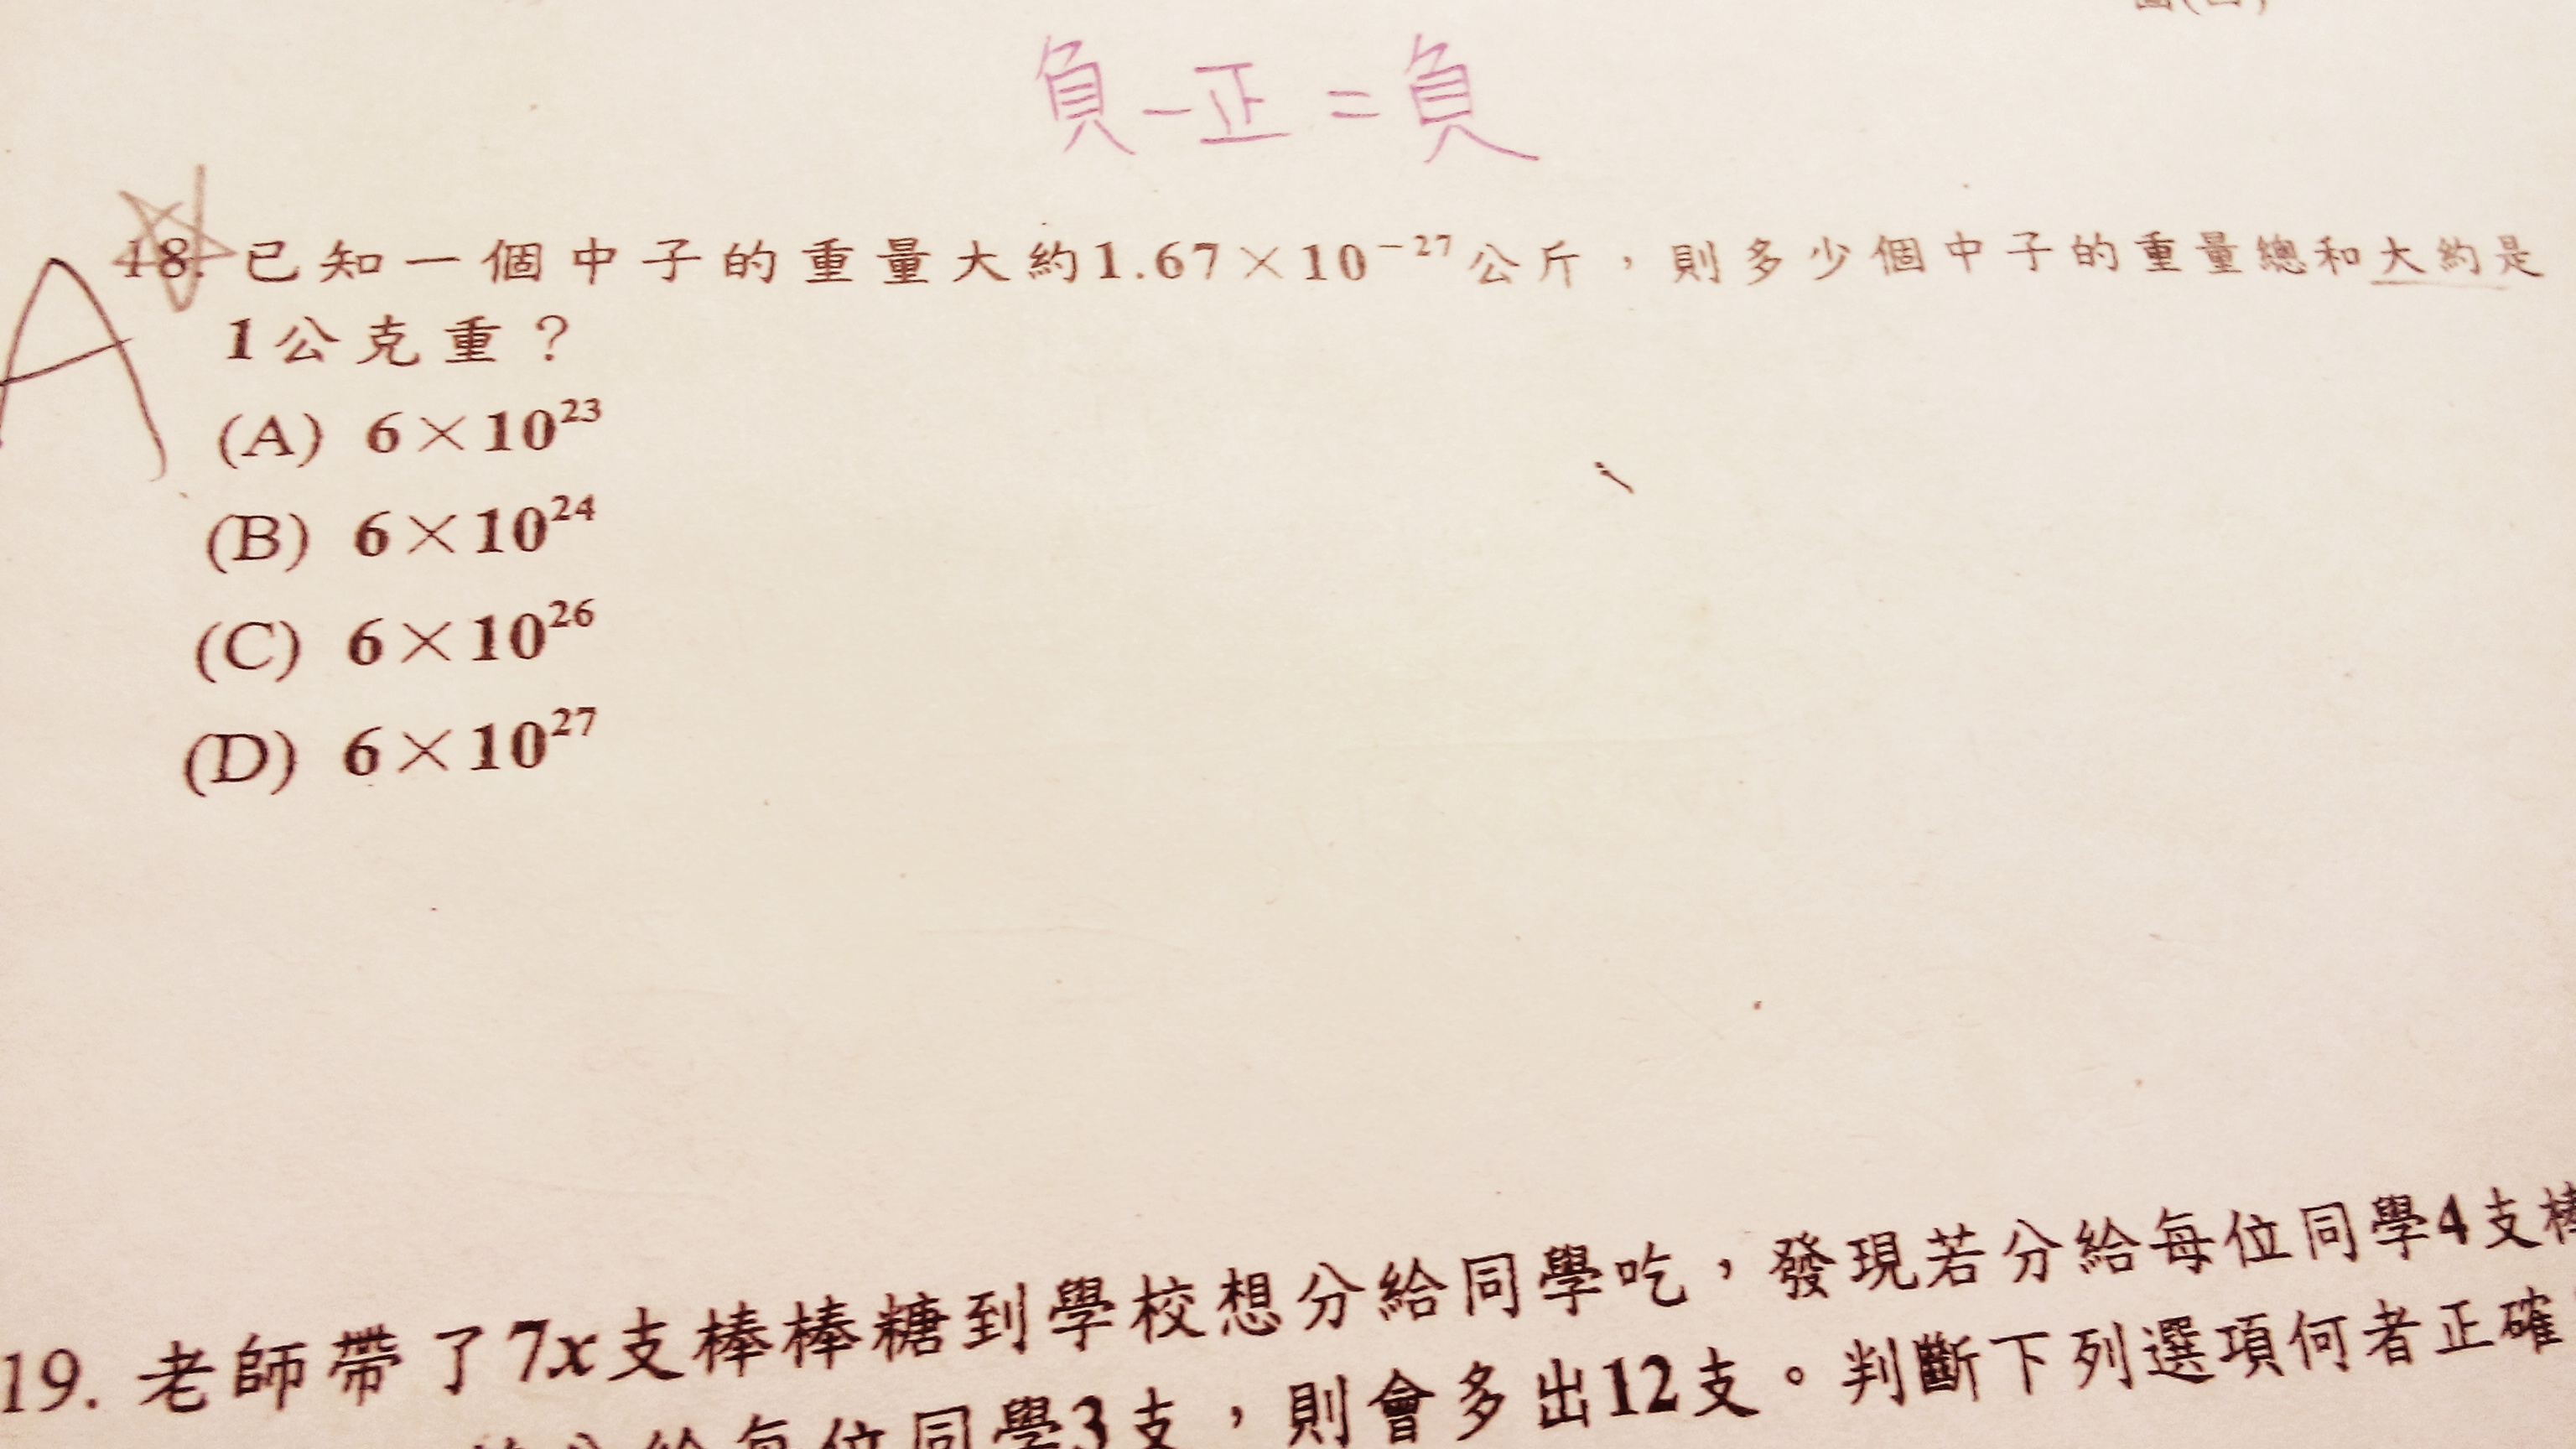 負-正=負
18. 已知一個中子的重量大約1.67×10⁻²⁷公斤，則多少個中子的重量總和大約是
1公克重？
A
(A) 6×10²³
(B) 6×10²⁴
(C) 6×10²⁶
(D) 6×10²⁷
19. 老師帶了7x支棒棒糖到學校想分給同學吃，發現若分給每位同學4支棒
給每位同學3支，則會多出12支。判斷下列選項何者正確